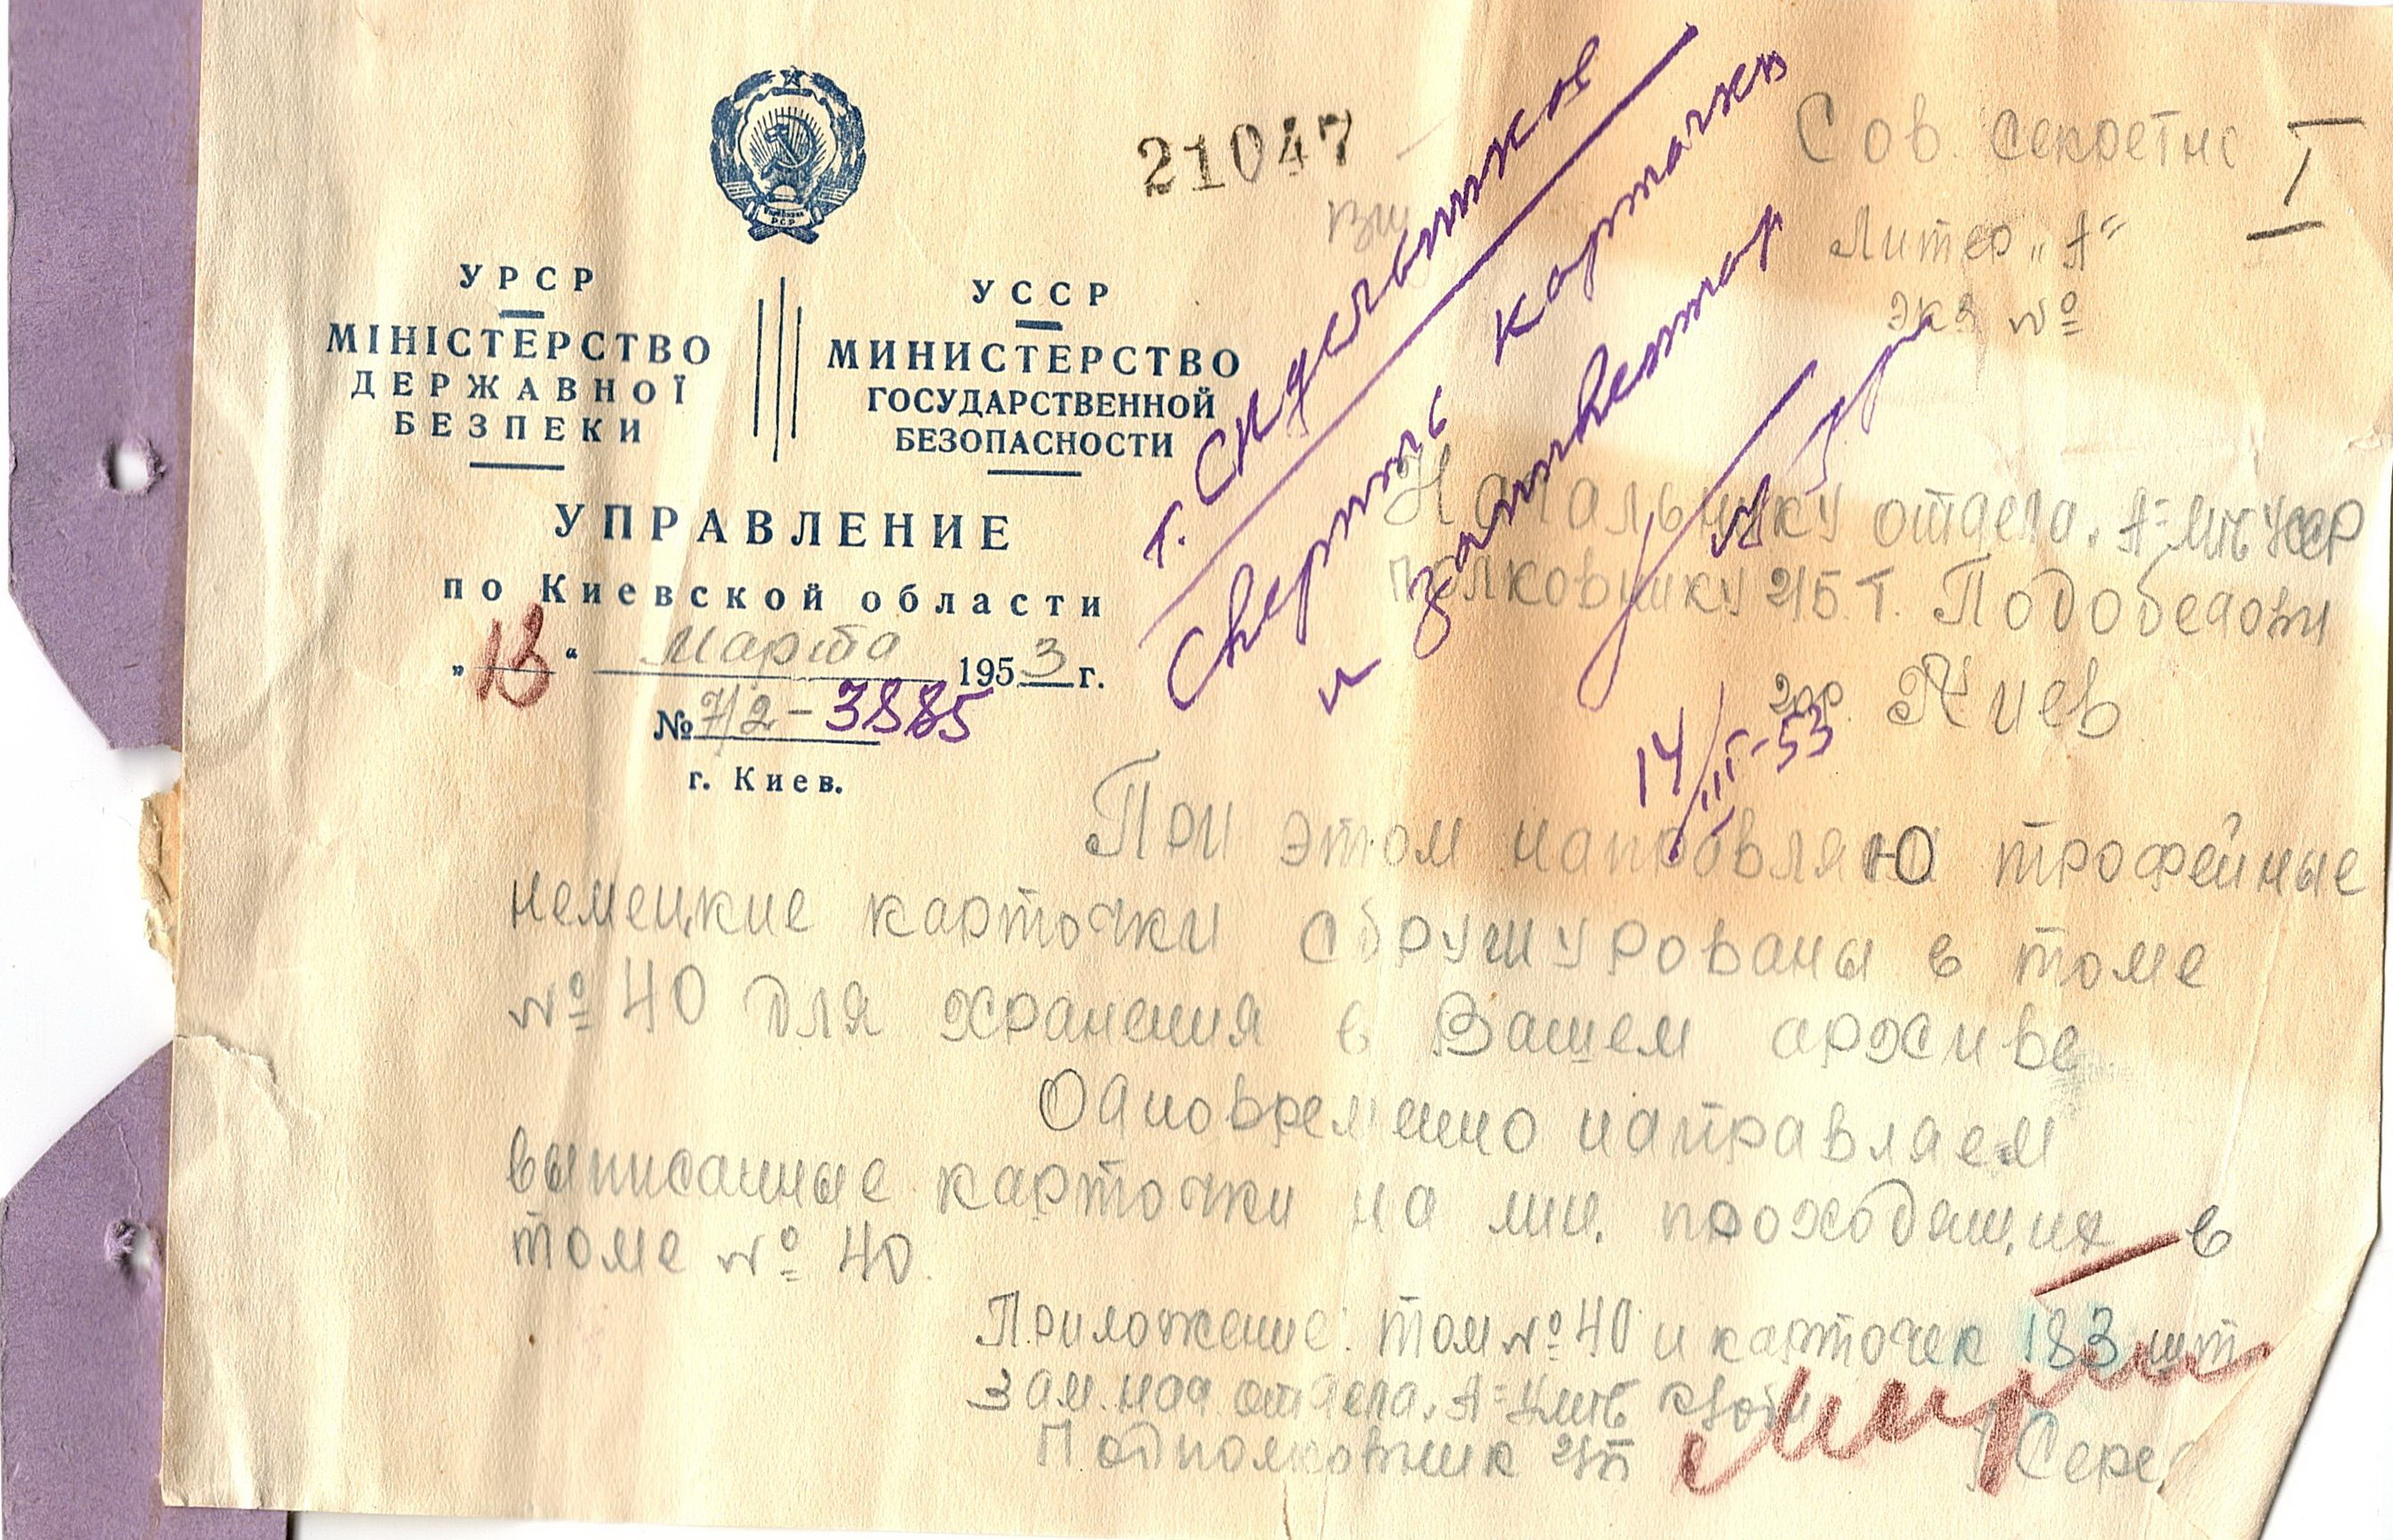 21047
Сов. секретно
I
Литер „А“
экз №
УРСР
МІНІСТЕРСТВО
ДЕРЖАВНОЇ
БЕЗПЕКИ
УССР
МИНИСТЕРСТВО
ГОСУДАРСТВЕННОЙ
БЕЗОПАСНОСТИ
УПРАВЛЕНИЕ
по Киевской области
„13“ марта 1953 г.
№ 7/2-3885
г. Киев.
т. Скусельникова
Сверить карточки
и
14/III-53
Начальнику отдела „А“ МГБ УССР
полковнику г/б т. Подобедову
гор. Киев
При этом направляю трофейные
немецкие карточки сбрушурованы в томе
№ 40 для хранения в Вашем архиве
Одновременно направляем
выписанные карточки на лиц. проходящих в
томе № 40.
Приложение: том № 40 и карточек 183 шт
Зам. нач отдела „А“ УМГБ
Подполковник г/б
Сере